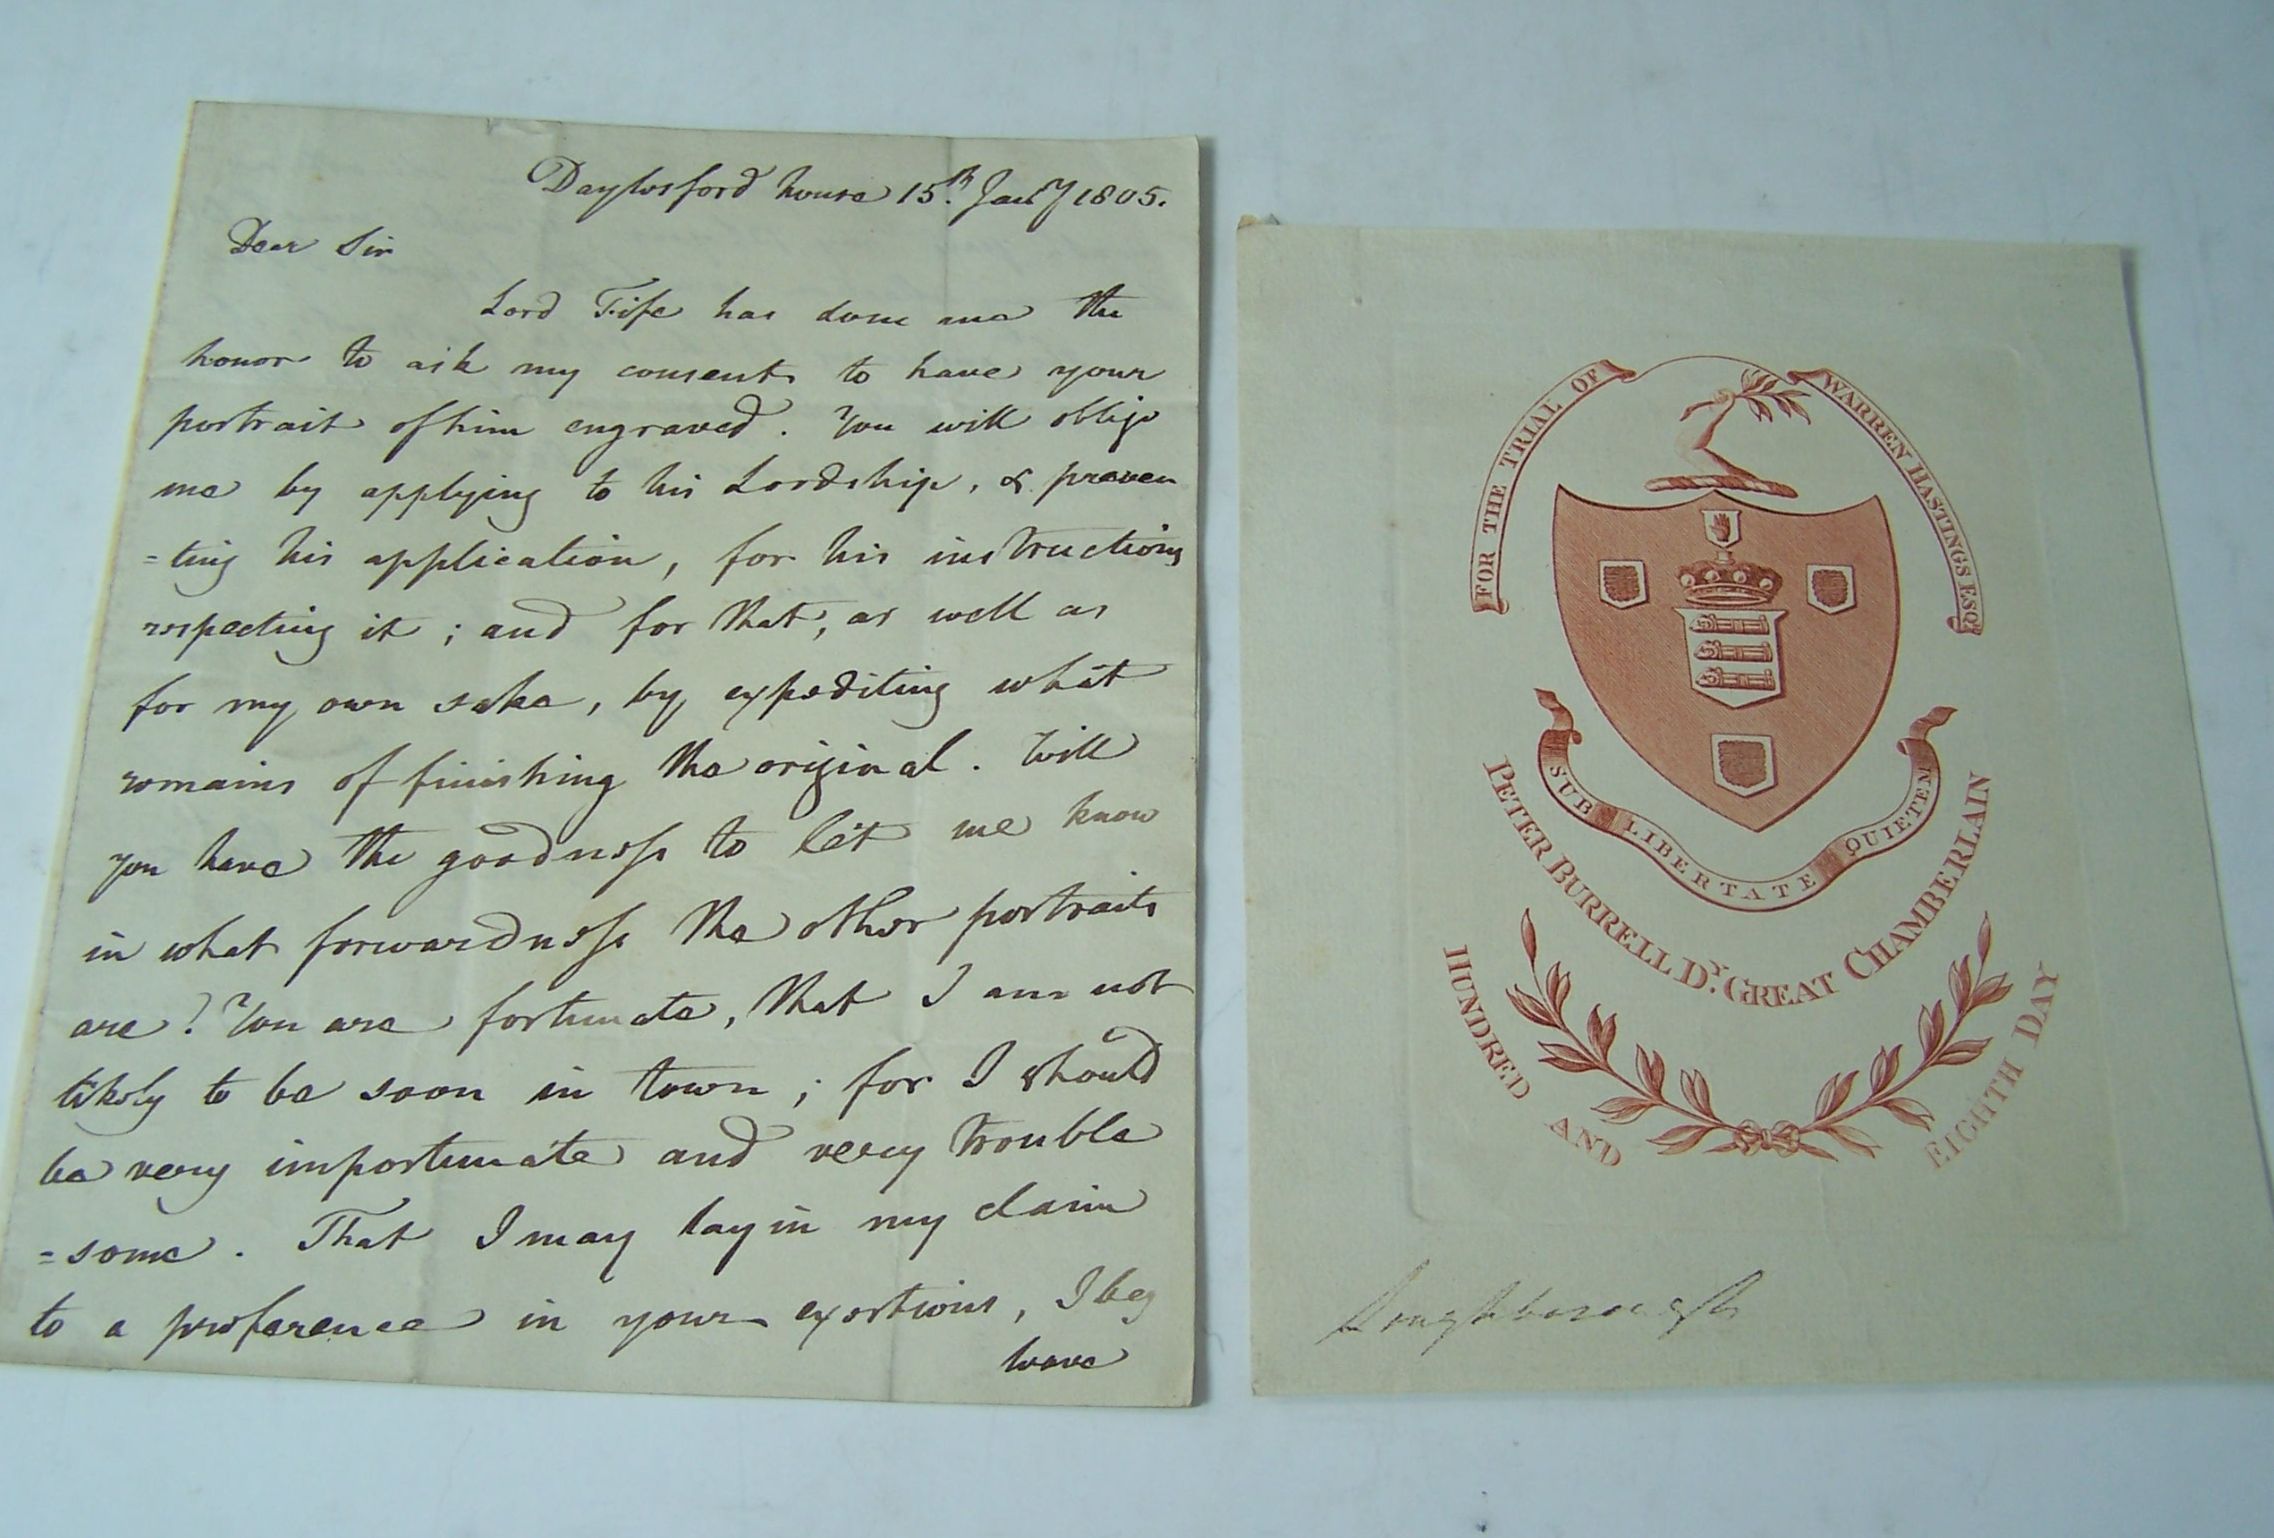 Daylesford house 15.th Jan.y 1805.
Dear Sir
Lord Fife has done me the
honor to ask my consent to have your
portrait of him engraved. You will oblige
me by applying to his Lordship, & preven
=ting his application, for his instructions
respecting it; and for that, as well as
for my own sake, by expediting what
remains of finishing the original. Will
you have the goodness to let me know
in what forwardness the other portraits
are? You are fortunate, that I am not
likely to be soon in town; for I should
be very importunate and very trouble
=some. That I may lay in my claim
to a preference in your exertions, I beg
leave
FOR THE TRIAL OF
WARREN HASTINGS ESQR.
SUB LIBERTATE QUIETEM
PETER BURRELL DY. GREAT CHAMBERLAIN
HUNDRED AND EIGHTH DAY
Loughborough